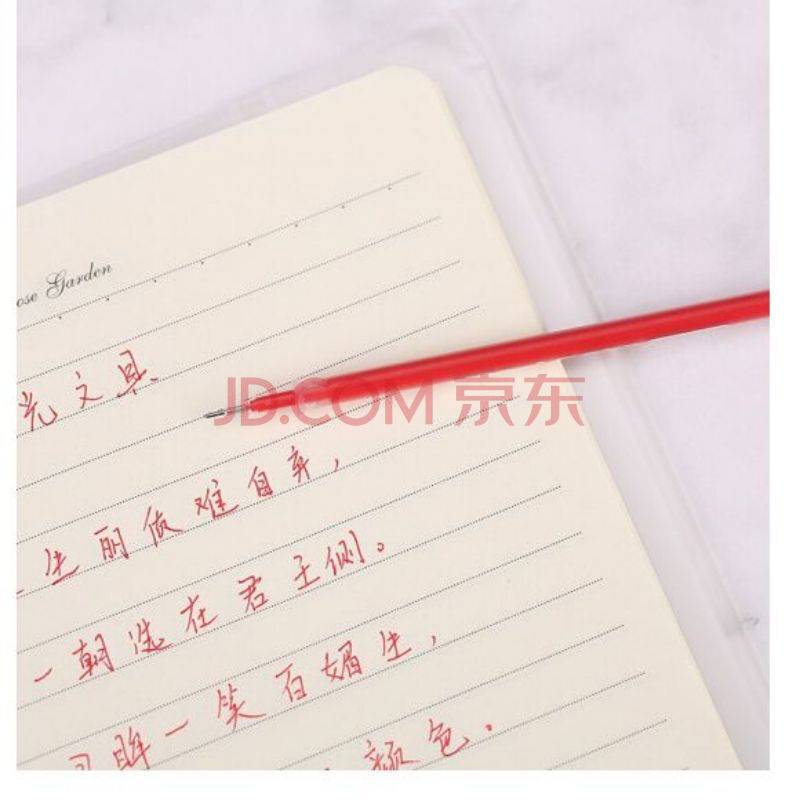 ose Garden
光文具
JD.COM 京东
生丽质难自弃，
一朝选在君王侧。
回眸一笑百媚生，
颜色.